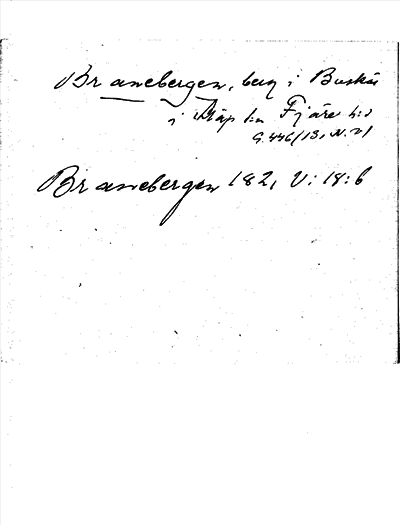 Branebergen, berg i Buskås
i Släp sn Fjäre hd
G.446/13, N. 21
Branebergen 182, V: 18:6